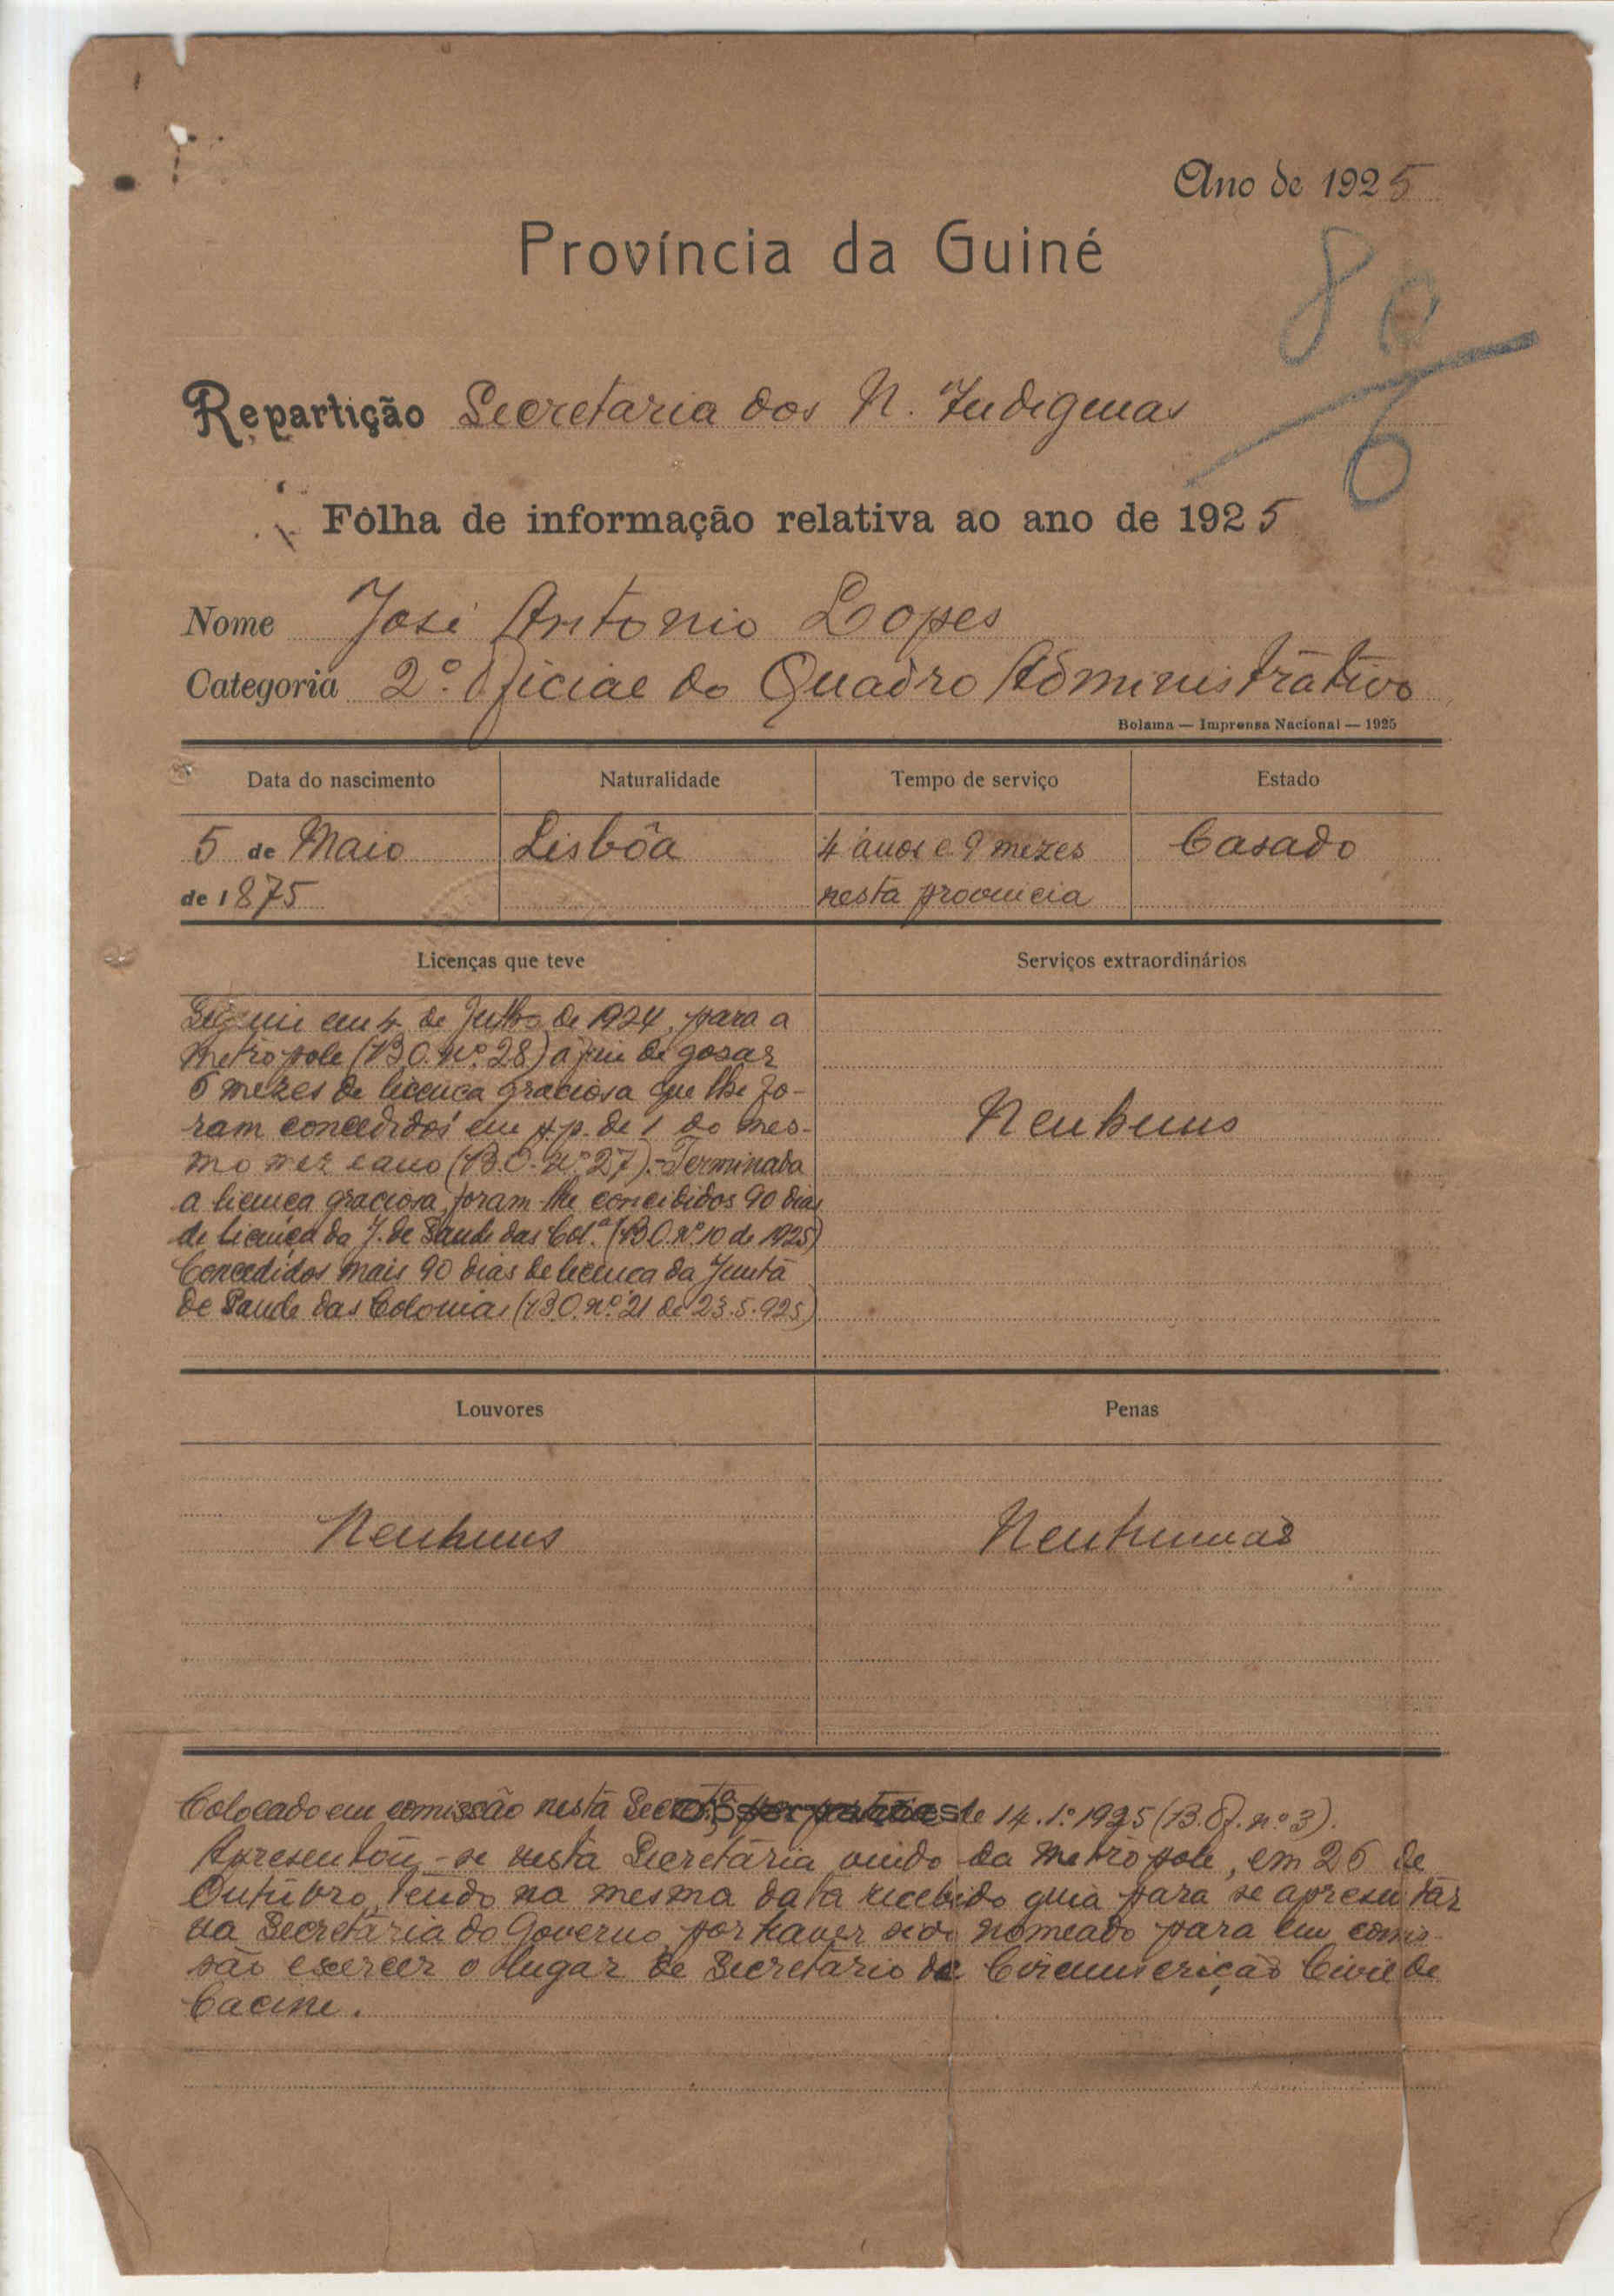 Ano de 1925
Província da Guiné
80
6
Repartição Secretaria dos N. Indigenas
Fôlha de informação relativa ao ano de 1925
Nome José Antonio Lopes
Categoria 2.º Oficial do Quadro Administrativo
Bolama — Imprensa Nacional — 1925
Data do nascimento Naturalidade Tempo de serviço Estado
5 de Maio Lisbôa 4 anos e 9 mezes Casado
de 1875 nesta provincia
Licenças que teve Serviços extraordinários
Seguiu em 4 de Julho de 1924, para a
metropole (B.O. nº 28) afim de gosar
6 mezes de licença graciosa que lhe fo-
ram concedidos em p.p. de 1 do mes-
mo mez e ano (B.O. nº 27).-Terminada
a licença graciosa, foram-lhe concedidos 90 dias
de licença da J. de Saude das Col.ª (B.O. nº 10 de 1925)
Concedidos mais 90 dias de licença da Junta
de Saude das Colonias (B.O. nº 21 de 23.5.925)
Nenhuns
Louvores Penas
Nenhuns Nenhumas
Colocado em comissão nesta Secretª, por de 14.1.º 1925 (B.Of. nº 3).
Observações
Apresentou-se nesta Secretaria, vindo da metropole, em 26 de
Outubro, tendo na mesma data recebido guia para se apresentar
na Secretaria do Governo por haver sido nomeado para em comis-
são exercer o lugar de Secretario da Circunscrição Civil de
Cacine.